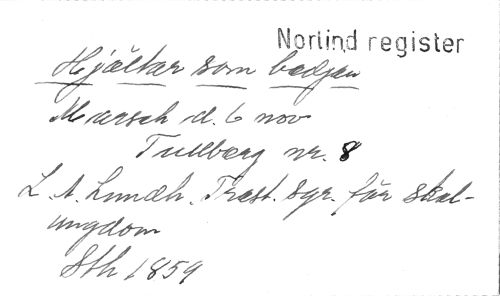 Norlind register
Hjältar som bedjen
Marsch d. 6 nov
Tullberg nr. 8
L. A. Lundh, Trest. sgr. för skol-
ungdom
Sth 1859